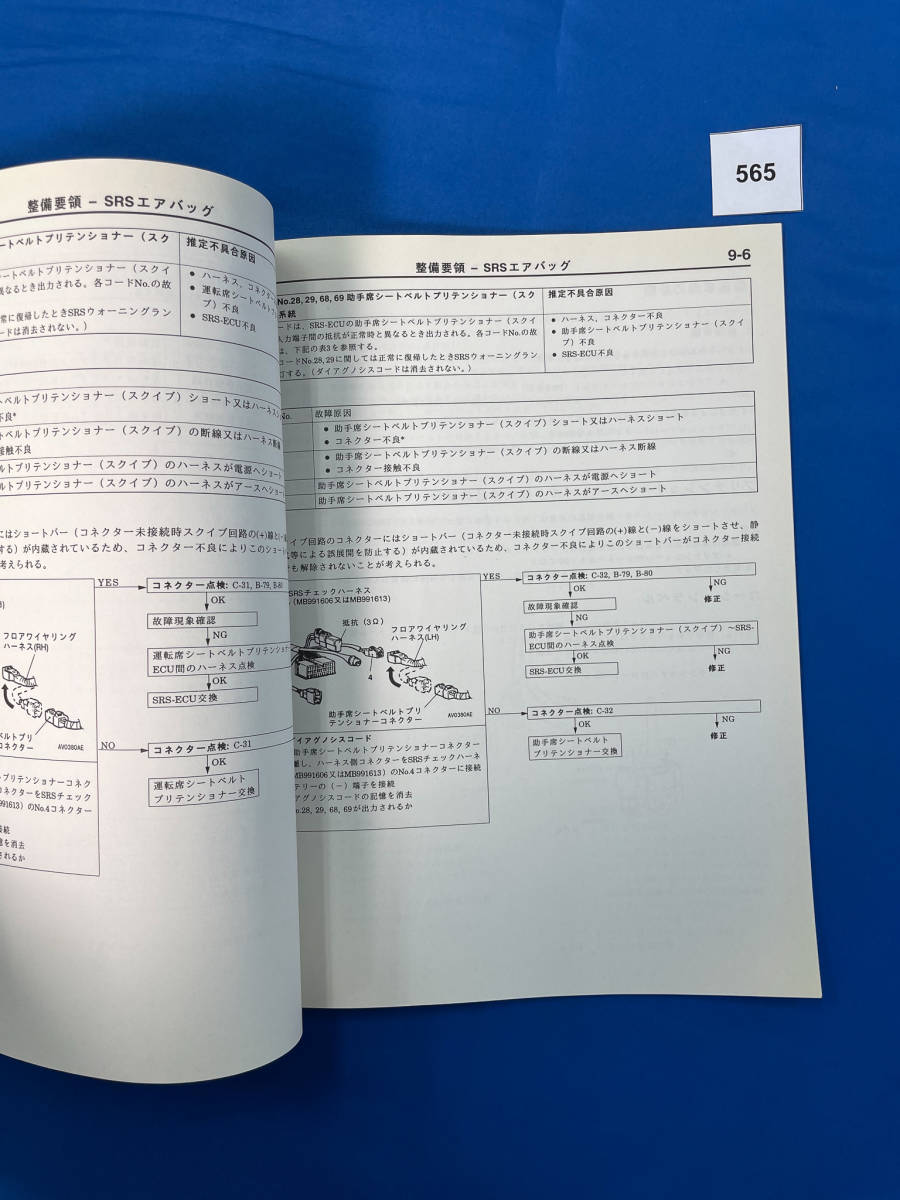 565
整備要領 – SRSエアバッグ
ートベルトプリテンショナー（スク
推定不具合原因
ートベルトプリテンショナー（スクイ
異なるとき出力される。各コードNo.の故
常に復帰したときSRSウォーニングラン
ードは消去されない。）
● ハーネス、コネクター
● 運転席シートベルトプ
プ）不良
● SRS-ECU不良
ベルトプリテンショナー（スクイブ）ショート又はハーネスシ
不良*
ベルトプリテンショナー（スクイブ）の断線又はハーネス断線
接触不良
ルトプリテンショナー（スクイブ）のハーネスが電源へショート
ルトプリテンショナー（スクイブ）のハーネスがアースへショート
にはショートバー（コネクター未接続時スクイブ回路の(+)線と(−
する）が内蔵されているため、コネクター不良によりこのショート
考えられる。
YES
コネクター点検: C-31, B-79, B-80
OK
故障現象確認
NG
運転席シートベルトプリテンショナー
ECU間のハーネス点検
OK
SRS-ECU交換
フロアワイヤリング
ハーネス(RH)
ベルトプリ
コネクター
AV0380AE
NO
コネクター点検: C-31
OK
運転席シートベルト
プリテンショナー交換
プリテンショナーコネク
コネクターをSRSチェック
991613）のNo.4コネクター
接続
憶を消去
されるか
整備要領 – SRSエアバッグ
9-6
No.28, 29, 68, 69 助手席シートベルトプリテンショナー（スク
系統
推定不具合原因
ードは、SRS-ECUの助手席シートベルトプリテンショナー（スクイ
入力端子間の抵抗が正常時と異なるとき出力される。各コードNo.の故
は、下記の表3を参照する。
コードNo.28, 29に関しては正常に復帰したときSRSウォーニングラン
灯する。（ダイアグノシスコードは消去されない。）
● ハーネス、コネクター不良
● 助手席シートベルトプリテンショナー（スクイ
ブ）不良
● SRS-ECU不良
No.
故障原因
● 助手席シートベルトプリテンショナー（スクイブ）ショート又はハーネスショート
● コネクター不良*
● 助手席シートベルトプリテンショナー（スクイブ）の断線又はハーネス断線
● コネクター接触不良
助手席シートベルトプリテンショナー（スクイブ）のハーネスが電源へショート
助手席シートベルトプリテンショナー（スクイブ）のハーネスがアースへショート
イブ回路のコネクターにはショートバー（コネクター未接続時スクイブ回路の(+)線と(−)線をショートさせ、静
等による誤展開を防止する）が内蔵されているため、コネクター不良によりこのショートバーがコネクター接続
も解除されないことが考えられる。
SRSチェックハーネス
（MB991606又はMB991613）
抵抗（3Ω）
フロアワイヤリング
ハーネス(LH)
4
助手席シートベルトプリ
テンショナーコネクター
AV0380AE
YES
コネクター点検: C-32, B-79, B-80
OK
NG
修正
故障現象確認
NG
助手席シートベルトプリテンショナー（スクイブ）〜SRS-
ECU間のハーネス点検
OK
NG
修正
SRS-ECU交換
NO
コネクター点検: C-32
OK
NG
修正
助手席シートベルト
プリテンショナー交換
ダイアグノシスコード
助手席シートベルトプリテンショナーコネクター
離し、ハーネス側コネクターをSRSチェックハーネ
MB991606又はMB991613）のNo.4コネクターに接続
テリーの（−）端子を接続
アグノシスコードの記憶を消去
o.28, 29, 68, 69が出力されるか